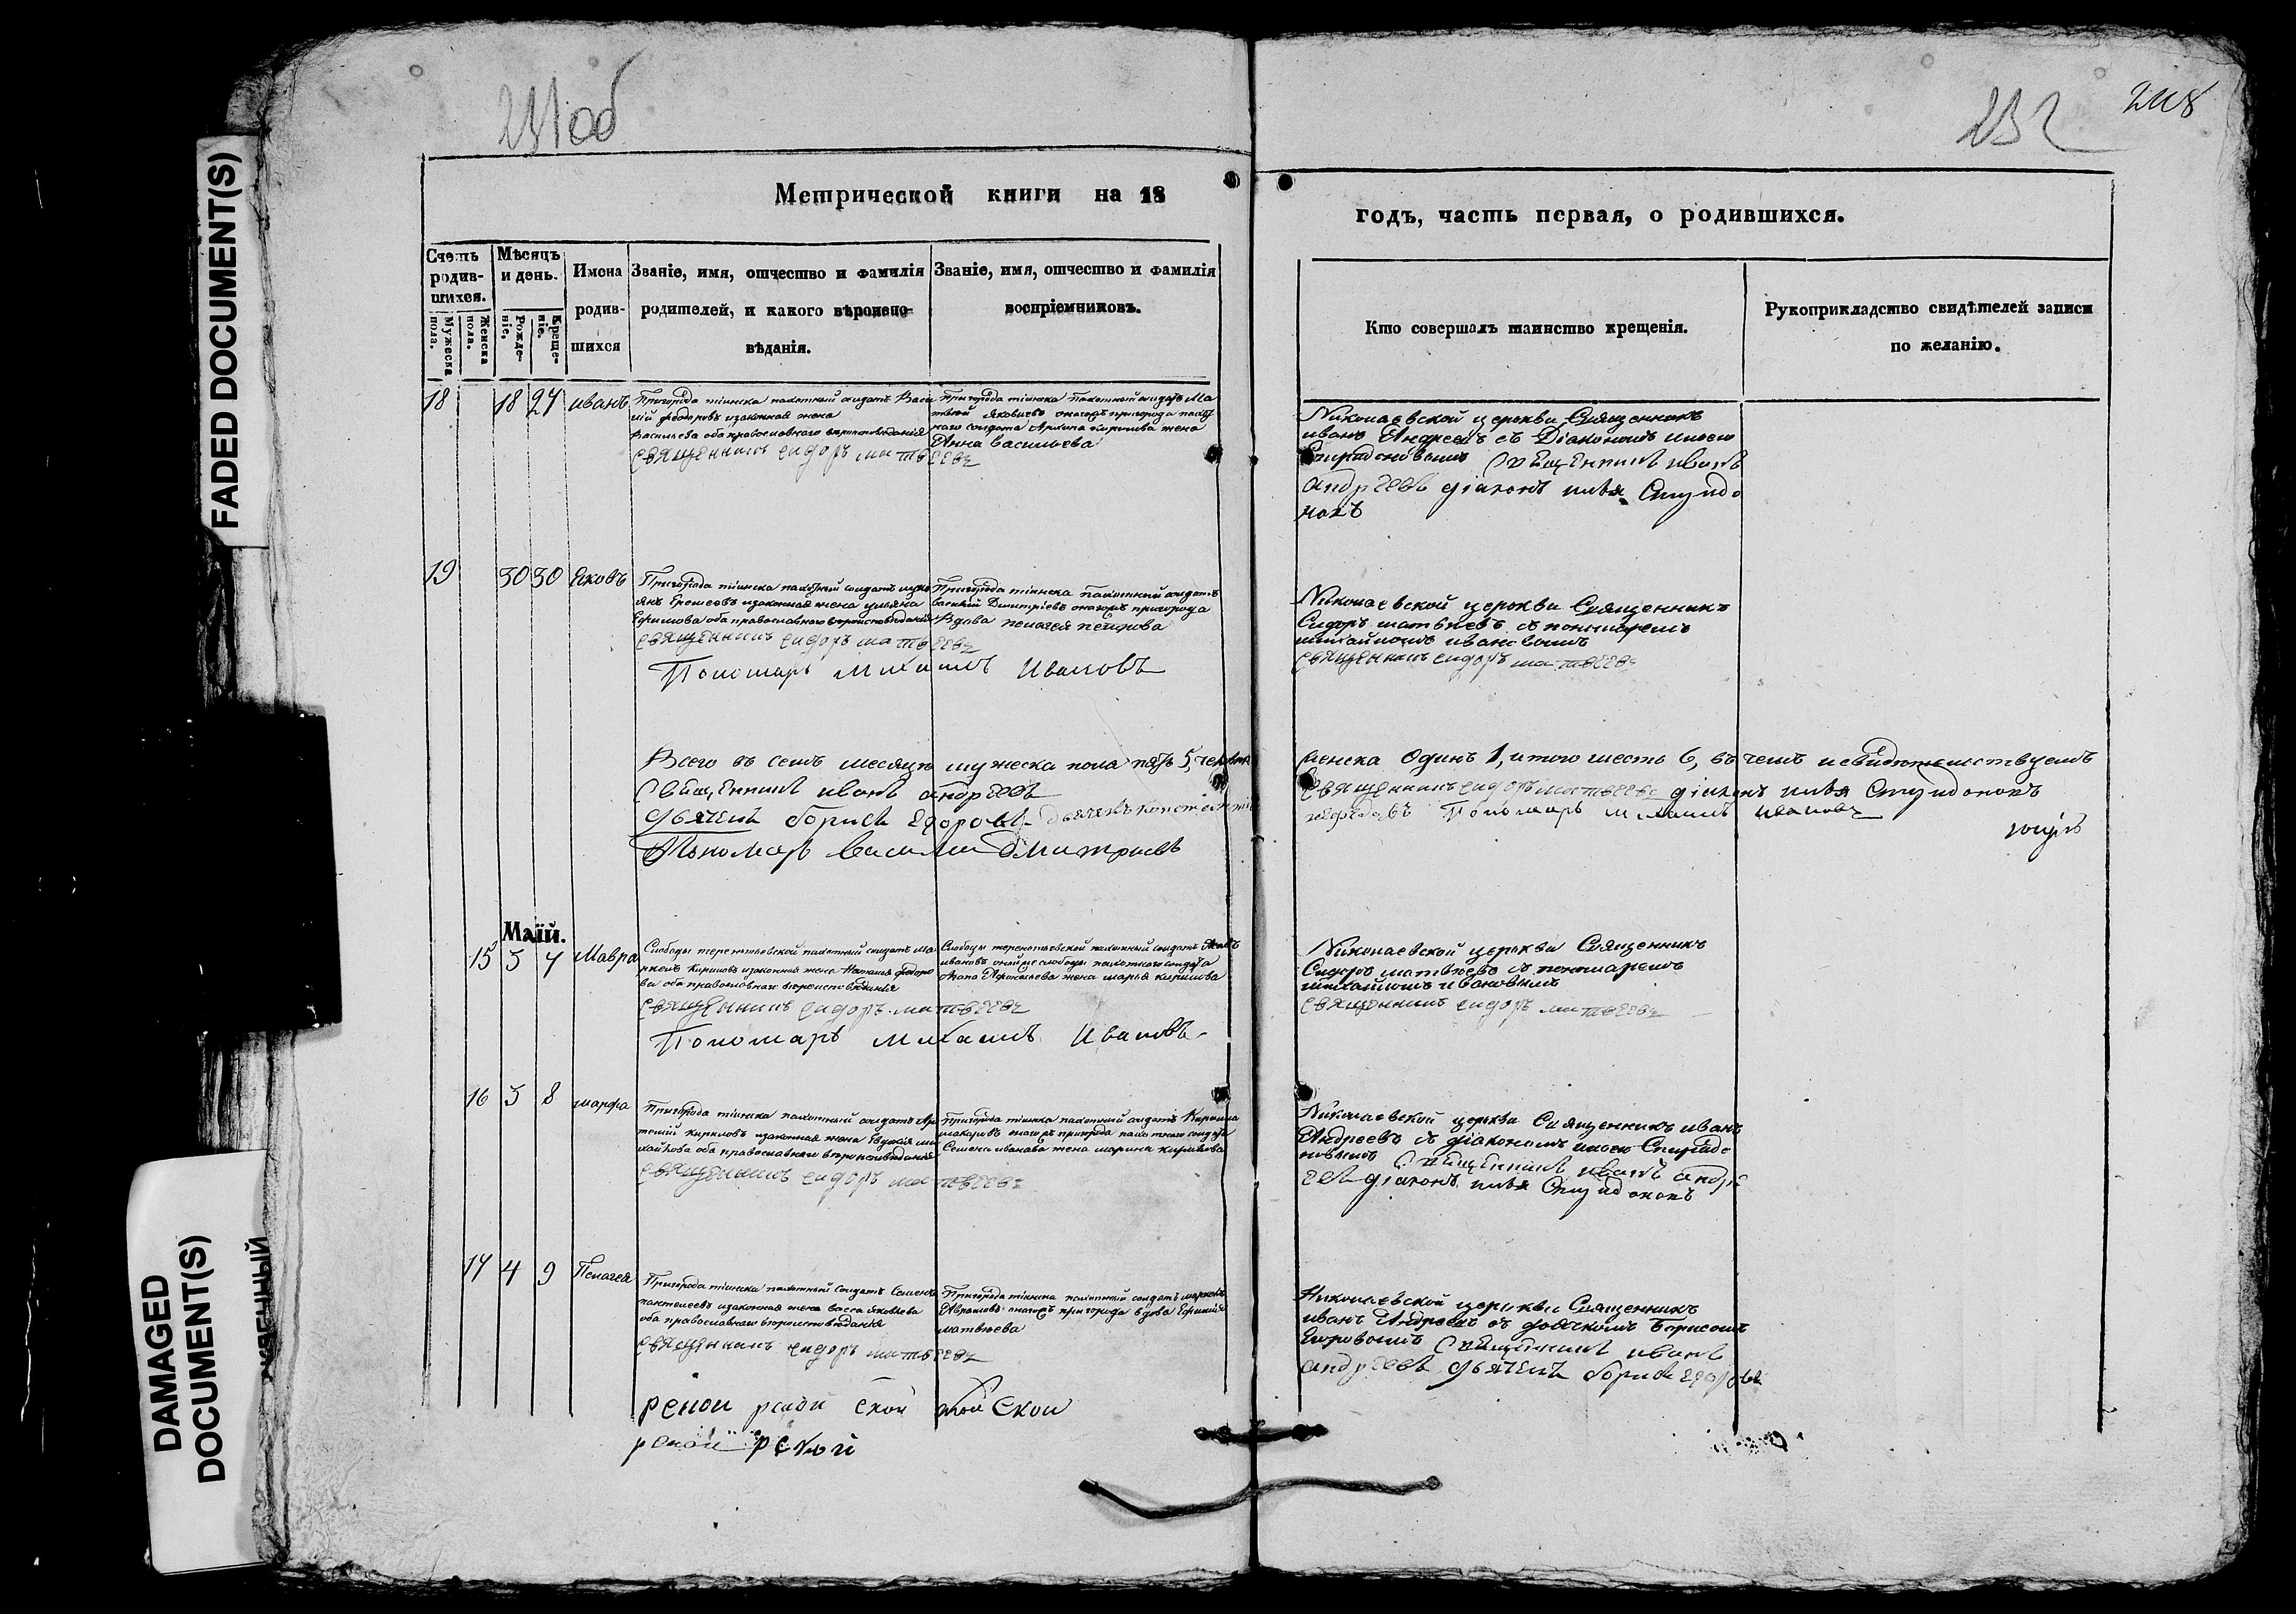 FADED DOCUMENT(S)
DAMAGED
DOCUMENT(S)
231 об
232
248
Метрической книги на 18
годъ, часть первая, о родившихся.
Счетъ
родив-
шихся.
Мѣсяцъ
и день.
Имена
родив-
шихся
Званіе, имя, отчество и фамилія
родителей, и какого вѣроиспо-
вѣданія.
Званіе, имя, отчество и фамилія
воспріемниковъ.
Мужеска
пола.
Женска
пола.
Рожде-
ніе.
Креще-
ніе.
Кто совершалъ таинство крещенія.
Рукоприкладство свидѣтелей записи
по желанію.
18 18 27 иванъ
Пригорода тіинска пахотный солдатъ Васи
лій федоровъ изаконная жена
Васильева оба православнаго вероисповеданія
священникъ сидоръ матвеевъ
Пригорода тіинска Пахотный солдатъ Ма
твей Яковлевъ онагожъ пригорода пахот
наго солдата жена
Анна Васильева
Николаевской церкви Священникъ
иванъ Андреевъ съ Діакономъ ильею
Спиридоновымъ Священникъ иванъ
андреевъ діаконъ илья Спиридо
новъ
19 30 30 Яковъ
Пригорода тіинска пахотный солдатъ лукь
янъ изаконная жена ульяна
Ефимова оба православнаго вероисповеданія
священникъ сидоръ матвеевъ
Пономарь Михаилъ Ивановъ
Пригорода тіинска Пахотный солдатъ
Василій Дмитріевъ онагожъ пригорода
Вдова пелагея петрова
Николаевской церькви Священникъ
Сидоръ матвѣевъ съ пономаремъ
михаиломъ ивановымъ
священникъ сидоръ матвеевъ
Всего въ семъ месяце мужеска пола пять 5, человекъ
женска Одинъ 1, итого шесть 6, въ чемъ и свидетельствуемъ
Священникъ иванъ андреевъ
священникъ сидоръ матвеевъ діаконъ илья Спиридоновъ
дьячекъ борисъ егоровъ дьячекъ
Пономарь михаилъ ивановъ
Пономарь василий Дмитриевъ
Маій.
15 3 7 Мавра
Слободы терентьевской пахотный солдатъ Ма
ркелъ Кириловъ изаконная жена Наталья федоро
ва оба православнаго вероисповеданія
священникъ сидоръ матвеевъ
Пономарь Михаилъ Ивановъ
Слободы терентьевской пахотный солдатъ
ивановъ онойже слободы пахотнаго солдата
жена марья кирилова
Николаевской церькви Священникъ
Сидоръ матвѣевъ съ пономаремъ
михаиломъ ивановымъ
священникъ сидоръ матвеевъ
16 3 8 марфа
Пригорода тіинска пахотный солдатъ Ар
темій Кириловъ изаконная жена Евдокія ми
хайлова оба православнаго вероисповеданія
священникъ сидоръ матвеевъ
Пригорода тіинска пахотный солдатъ Кирила
макаровъ тогожъ пригорода пахотнаго солдата
Семена иванова жена марина кирилова
Николаевской церькви Священникъ иванъ
Андреевъ съ діакономъ ильею Спиридо
новымъ Священникъ иванъ андре
евъ діаконъ илья Спиридоновъ
17 4 9 Пелагея
Пригорода тіинска пахотный солдатъ Семенъ
пантелеевъ изаконная жена васса яковлева
оба православнаго вероисповеданія
священникъ сидоръ матвеевъ
Пригорода тіинска пахотный солдатъ маркелъ
Аврамовъ онагожъ пригорода вдова Ефимія
матвеева
Николаевской церькви Священникъ
иванъ Андреевъ съ дьячкомъ Борисомъ
Егоровымъ Священникъ иванъ
андреевъ дьячекъ борисъ егоровъ